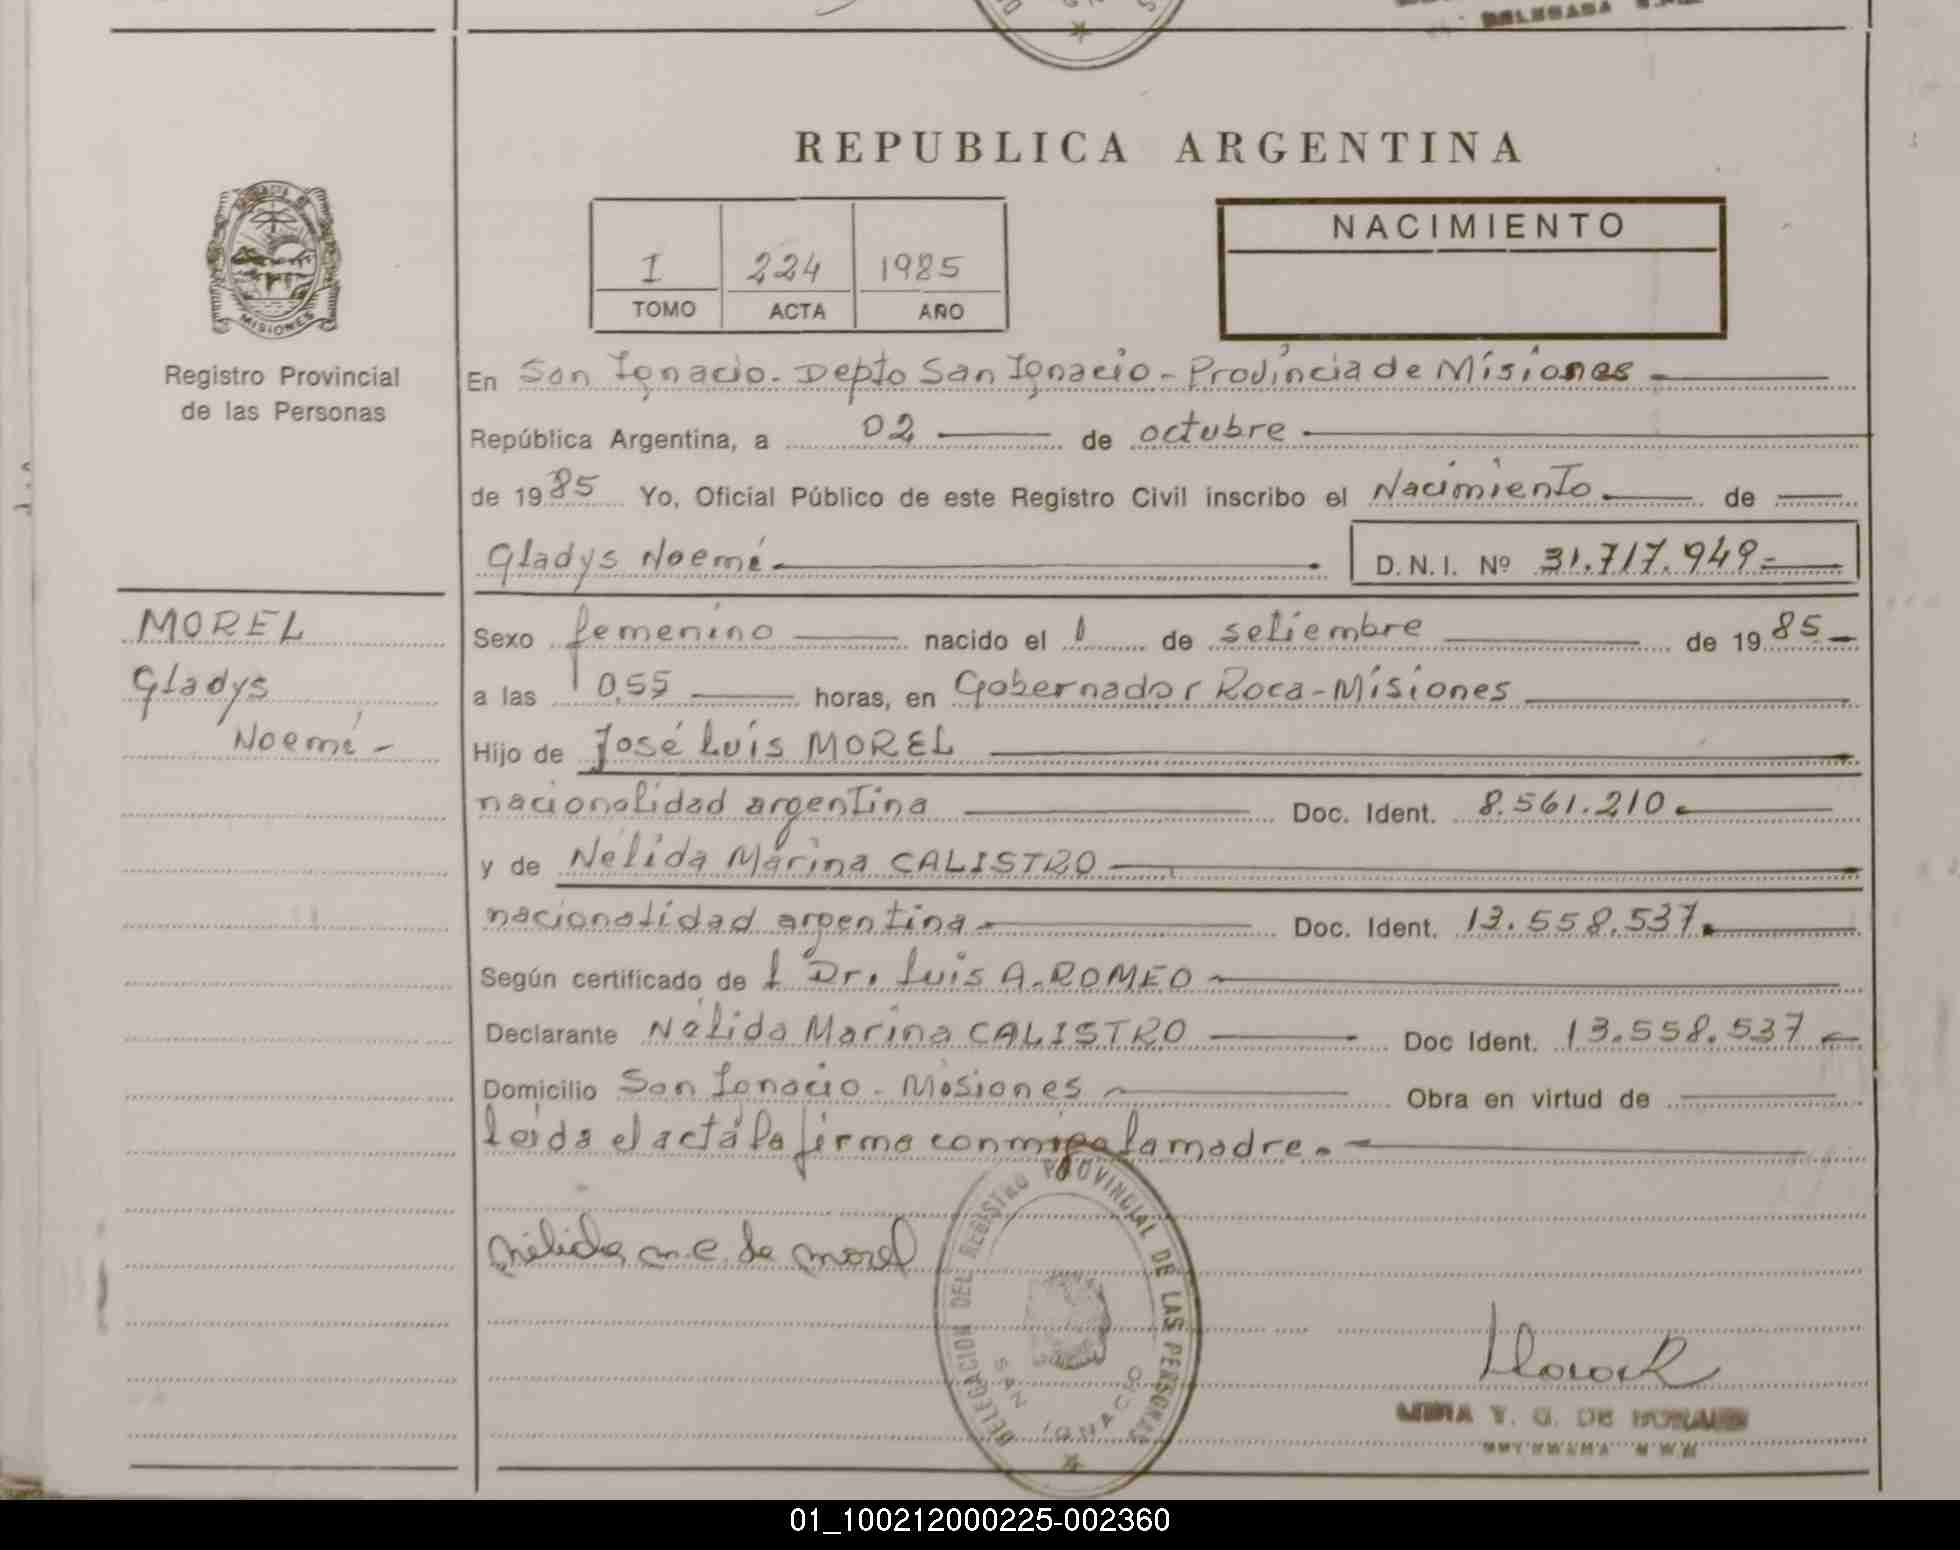 DELEGADA
REPUBLICA ARGENTINA
NACIMIENTO
I 224 1985
TOMO ACTA AÑO
MISIONES
Registro Provincial
de las Personas
En San Ignacio - Depto San Ignacio - Provincia de Misiones
República Argentina, a 02 de octubre
de 1985 Yo, Oficial Público de este Registro Civil inscribo el Nacimiento de
Gladys Noemí D.N.I. Nº 31.717.949-
MOREL
Gladys
Noemí -
Sexo femenino nacido el 1 de setiembre de 1985
a las 0,55 horas, en Gobernador Roca - Misiones
Hijo de José Luis MOREL
nacionalidad argentina Doc. Ident. 8.561.210
y de Nélida Marina CALISTRO
nacionalidad argentina Doc. Ident. 13.558.537
Según certificado de l Dr. Luis A. ROMEO
Declarante Nélida Marina CALISTRO Doc Ident. 13.558.537
Domicilio San Ignacio - Misiones Obra en virtud de
leída el acta la firma conmigo la madre.
Nélida m. c. de morel
DELEGACION DEL REGISTRO PROVINCIAL DE LAS PERSONAS
SAN IGNACIO
Y. G. DE
01_100212000225-002360